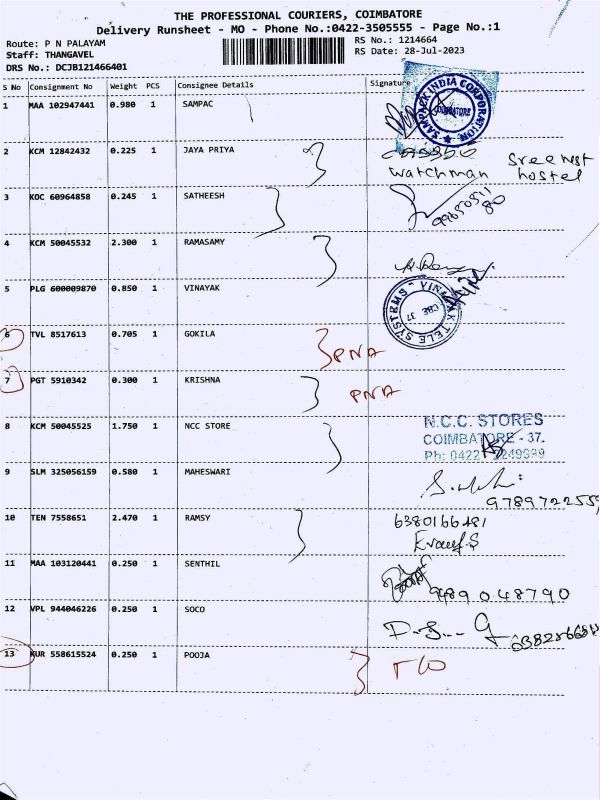 THE PROFESSIONAL COURIERS, COIMBATORE
Delivery Runsheet - MO - Phone No.:0422-3505555 - Page No.:1
Route: P N PALAYAM
RS No.: 1214664
Staff: THANGAVEL
RS Date: 28-Jul-2023
DRS No.: DCJB121466401
S No Consignment No Weight PCS Consignee Details Signature
1 MAA 102947441 0.980 1 SAMPAC
SAMPACK INDIA CORPORATION
COIMBATORE
2 KCM 12842432 0.225 1 JAYA PRIYA
watchman
hostel
3 KOC 60964858 0.245 1 SATHEESH
4 KCM 50045532 2.300 1 RAMASAMY
5 PLG 600009870 0.850 1 VINAYAK
VINAYAK TELE SYSTEMS
CBE 37
6 TVL 8517613 0.705 1 GOKILA PNA
7 PGT 5910342 0.300 1 KRISHNA PNA
8 KCM 50045525 1.750 1 NCC STORE
N.C.C. STORES
COIMBATORE - 37.
Ph: 0422
9 SLM 325056159 0.580 1 MAHESWARI
10 TEN 7558651 2.470 1 RAMSY
6380166481
11 MAA 103120441 0.250 1 SENTHIL
9489048790
12 VPL 944046226 0.250 1 SOCO
13 KUR 558615524 0.250 1 POOJA